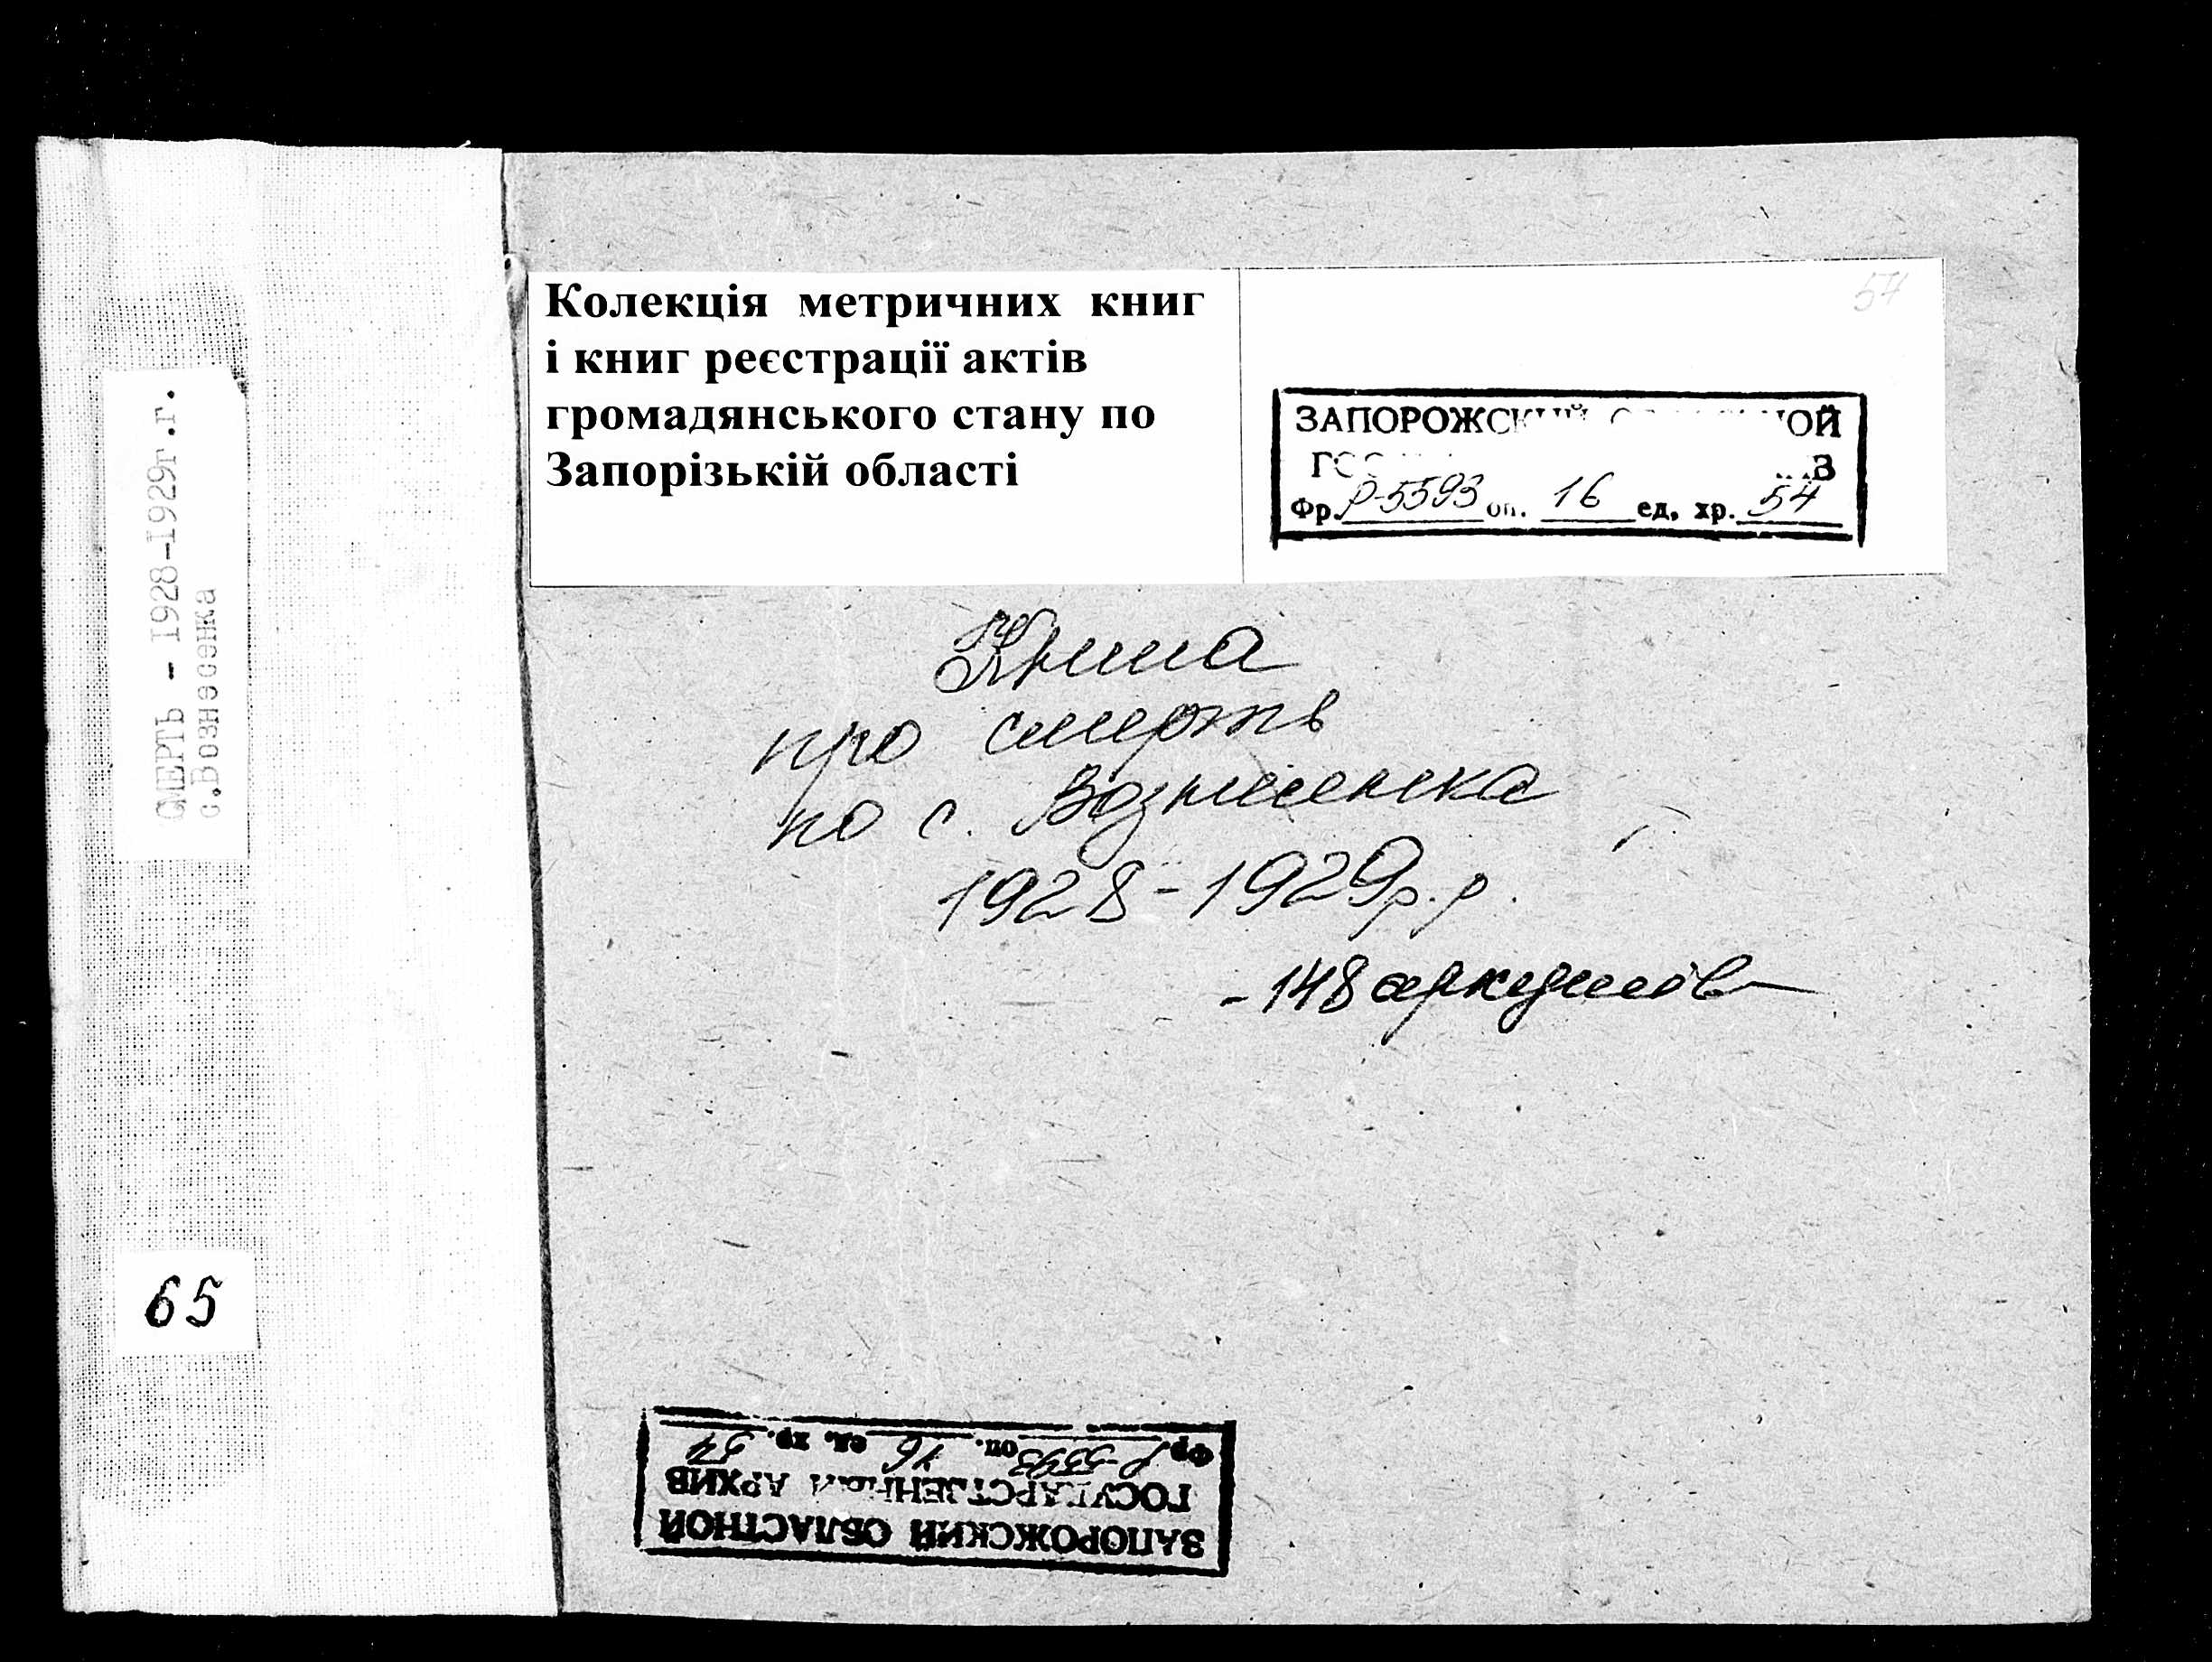 СМЕРТЬ - 1928-1929г.г.
с.Вознесенка
65
Колекція метричних книг
і книг реєстрації актів
громадянського стану по
Запорізькій області
54
ЗАПОРОЖСКИЙ ОБЛАСТНОЙ
Фр. Р-5593 оп. 16 ед. хр. 54
Книга
про смерть
по с. Вознесенка
1928-1929р.р.
- 148 аркушів
ЗАПОРОЖСКИЙ ОБЛАСТНОЙ
ГОСУДАРСТВЕННЫЙ АРХИВ
Фр. Р-5593 оп. 16 ед. хр. 54